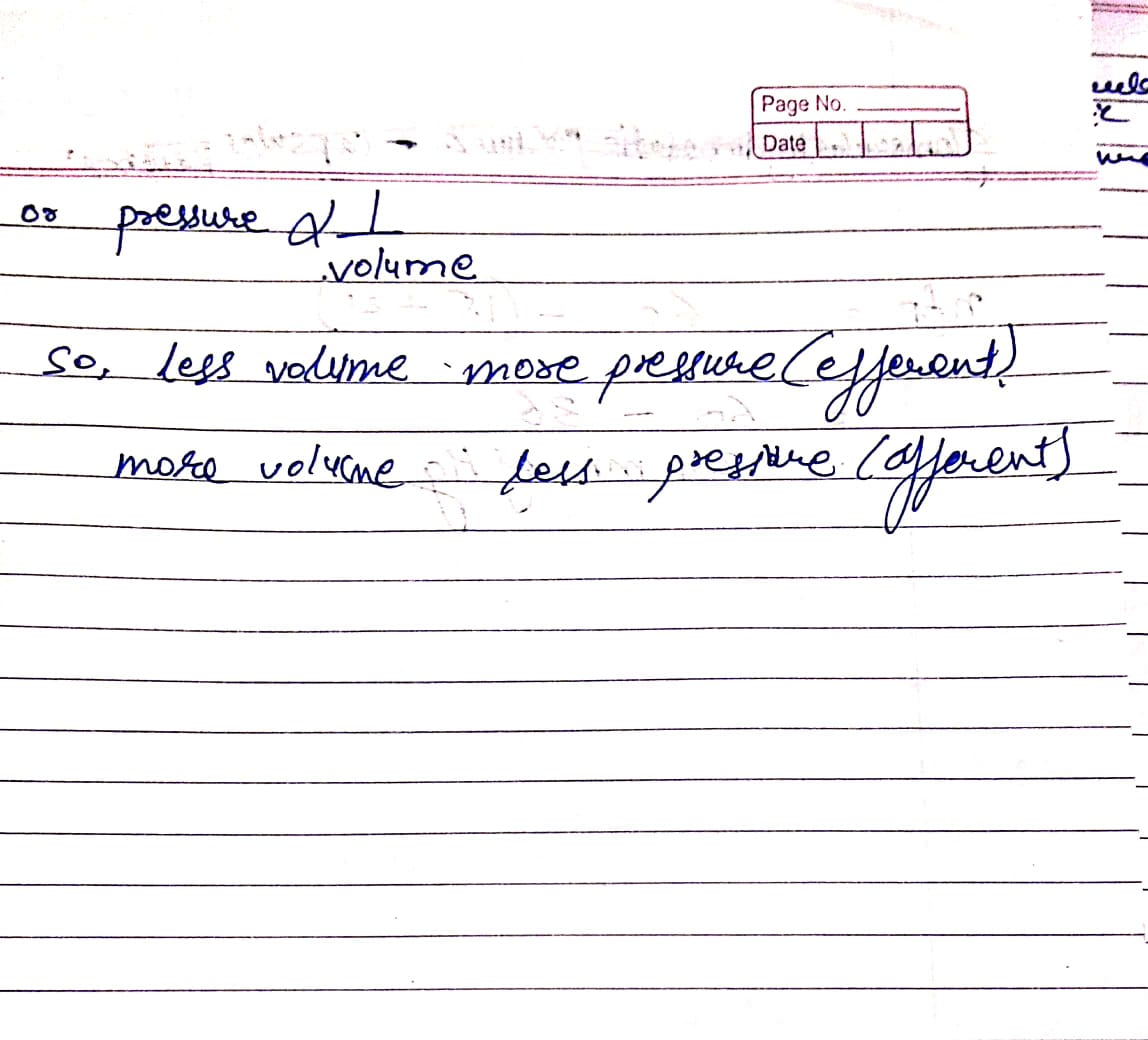 Page No.
Date
or pressure ∝ 1
volume
So, less volume more pressure (efferent)
more volume less pressure (afferent)